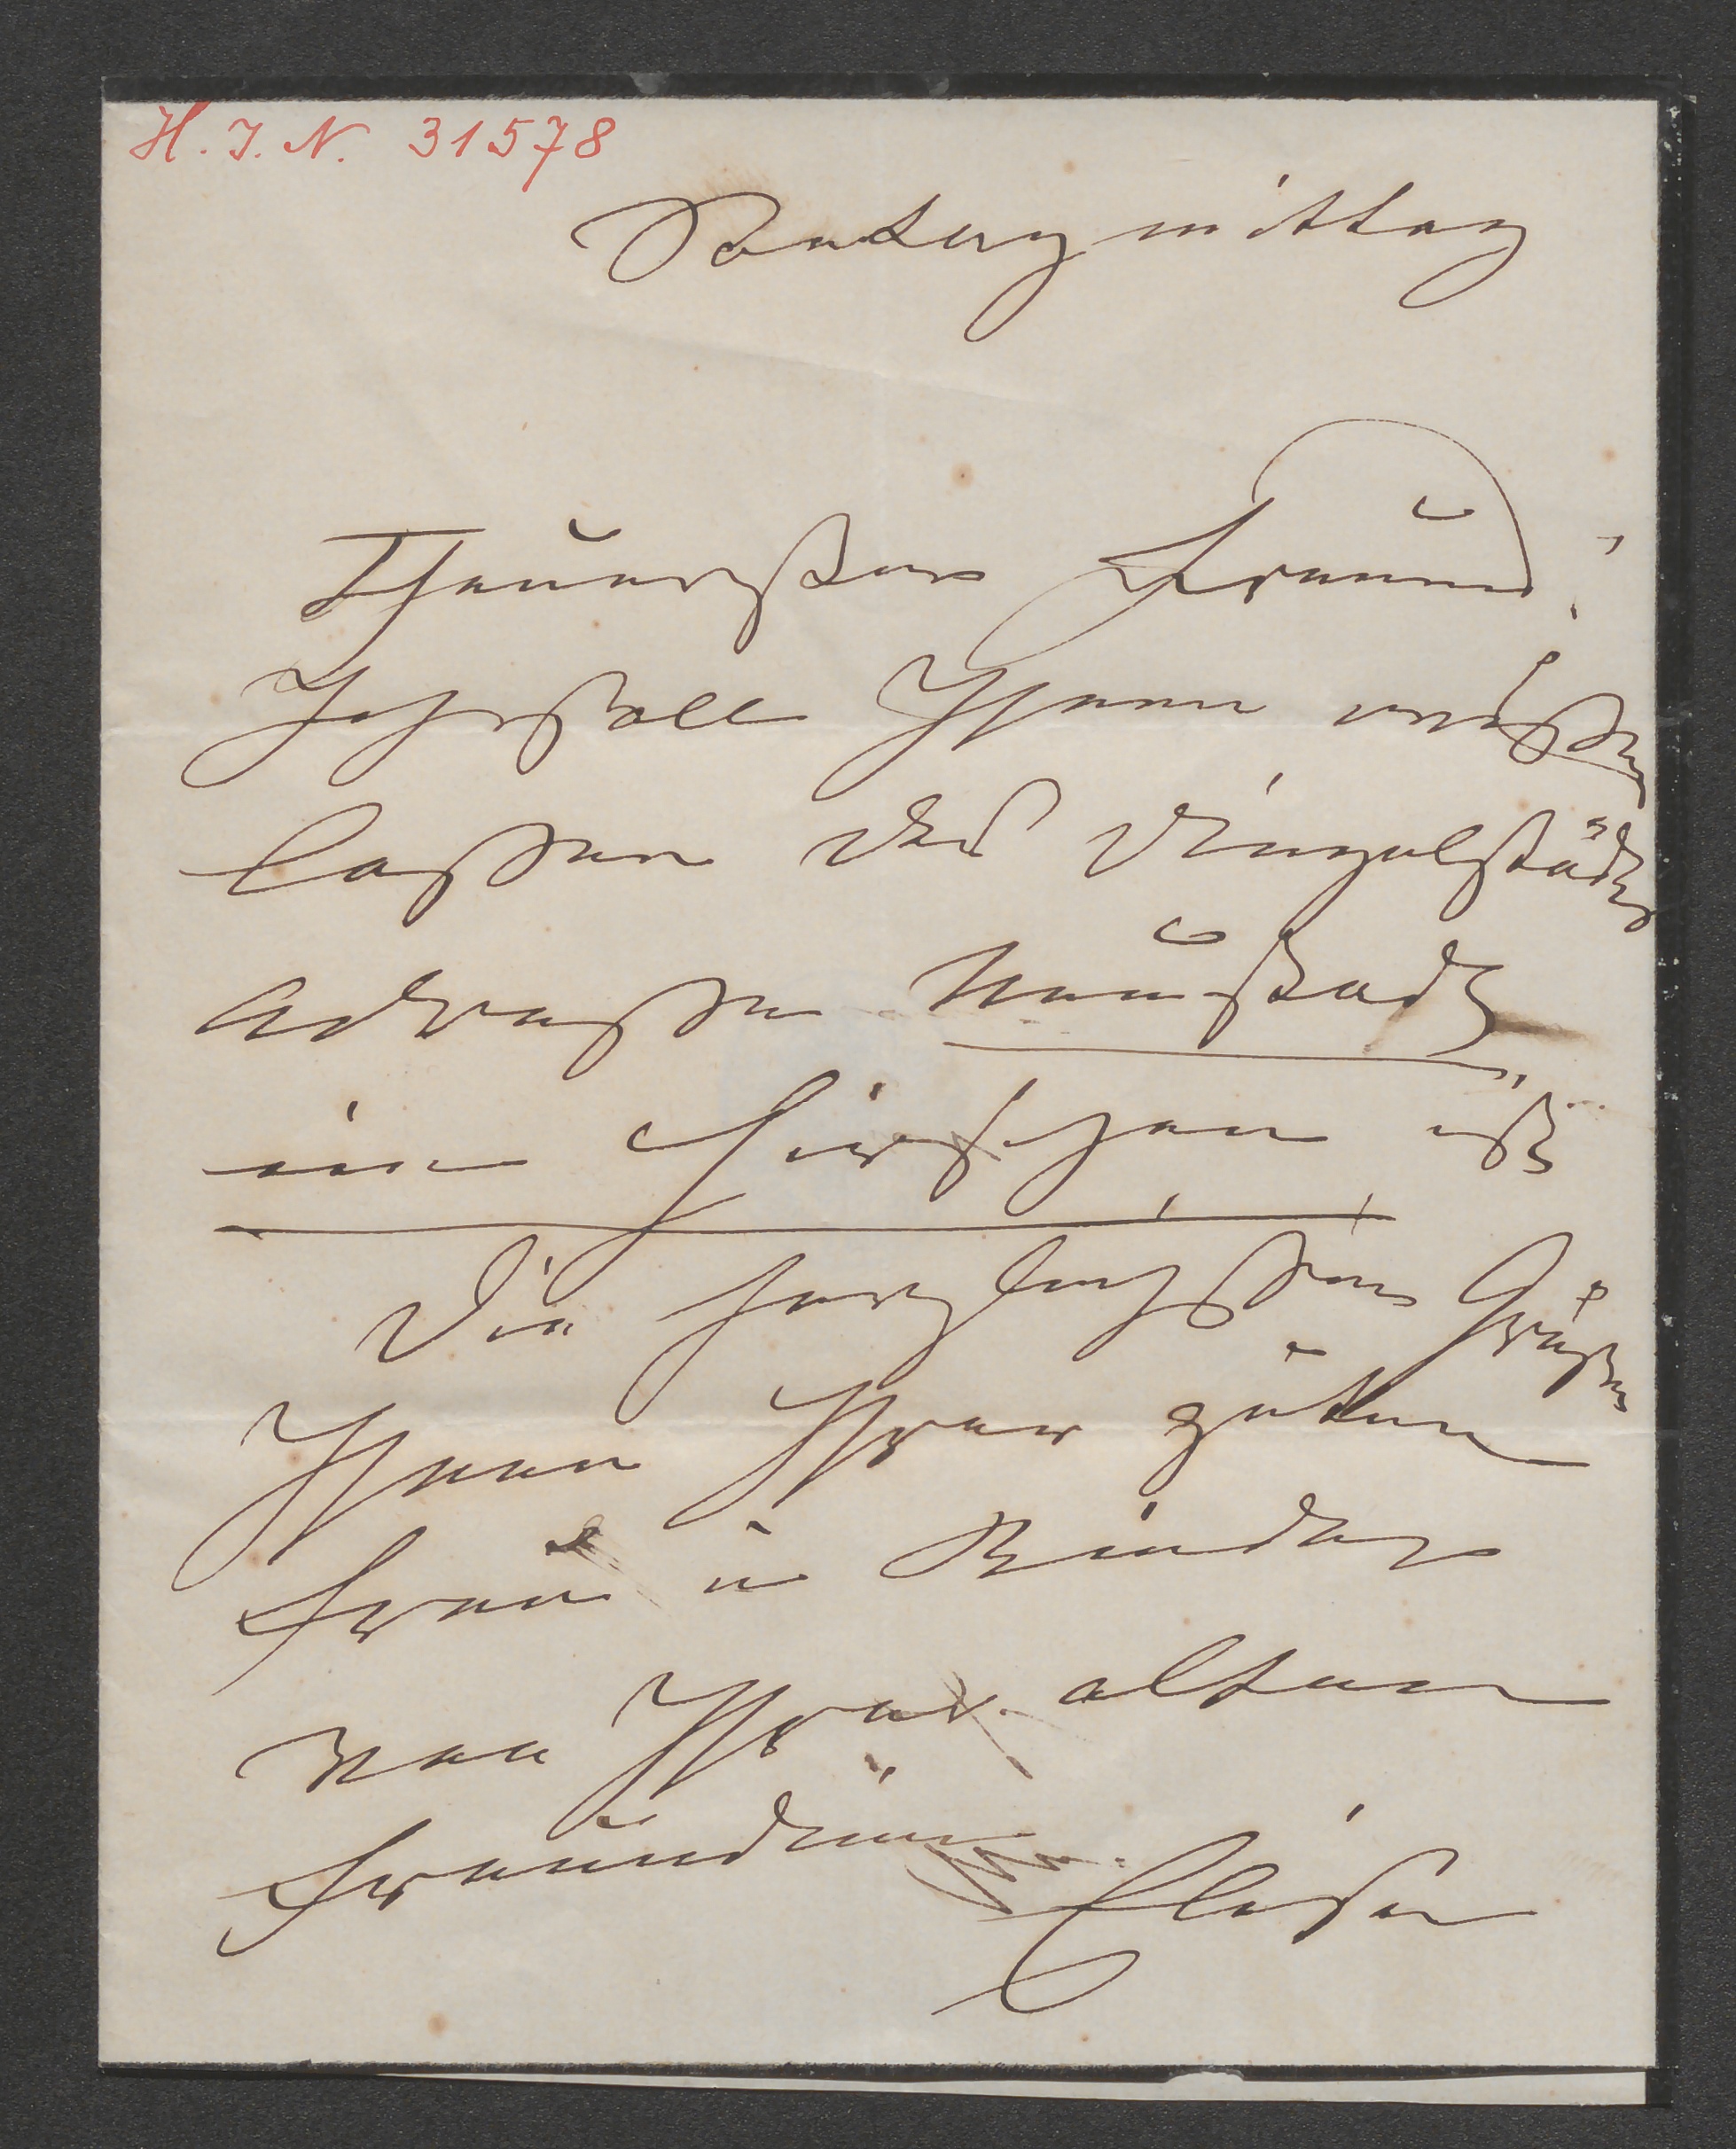 H. I. N. 31578
Sontag mittag
Theuerster Freund!
Ich soll Ihnen wissen
lassen das Dingelstädts
Adresse Neustadt
im Hirschen ist
Die herzlichsten Grüße
Ihnen Ihrer guten
Frau u Kinder
von Ihrer alten
Freundin
Elise